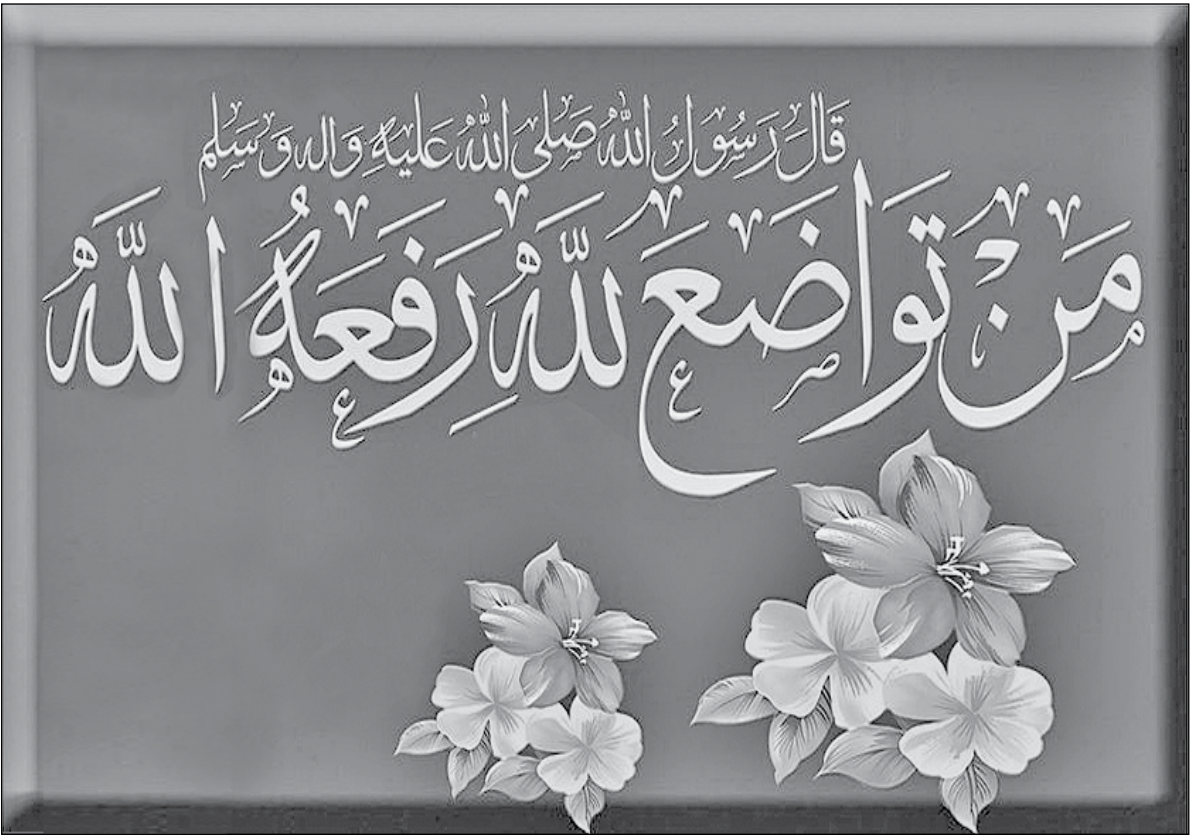 قَالَ رَسُوْلُ اللّٰهُ صَلَّى اللّٰهُ عَلَيْهِ وَاٰلِهٖ وَسَلَّم
مَنْ تَوَاضَعَ لِلّٰهِ رَفَعَهُ اللّٰهُ